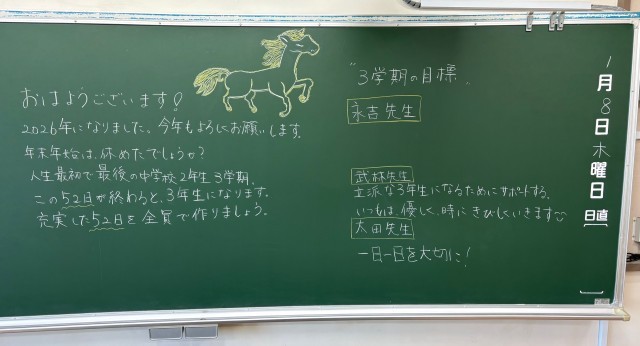 おはようございます!
2026年になりました、今年もよろしくお願いします。
年末年始は、休めたでしょうか?
人生最初で最後の中学校2年生3学期。
この52日が終わると、3年生になります。
充実した52日を全員で作りましょう。
"3学期の目標"
永吉先生
武林先生
立派な3年生になるためにサポートする。
いつもは、優しく、時にきびしくいきます
太田先生
一日一日を大切に!
1月8日木曜日
日直